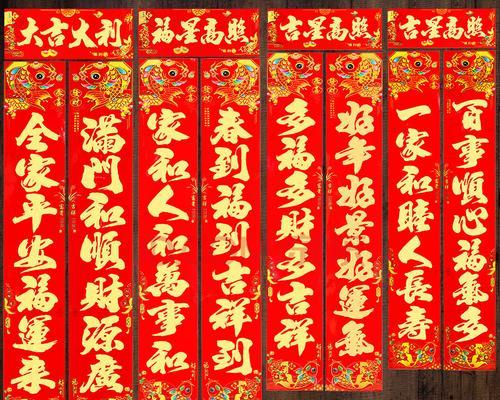 大吉大利
满門和順財源廣
全家平安福運来
福星高照
春到福到吉祥到
家和人和萬事和
吉星高照
好年好景好運氣
多福多財多吉祥
吉星高照
百事順心福氣多
一家和睦人長寿